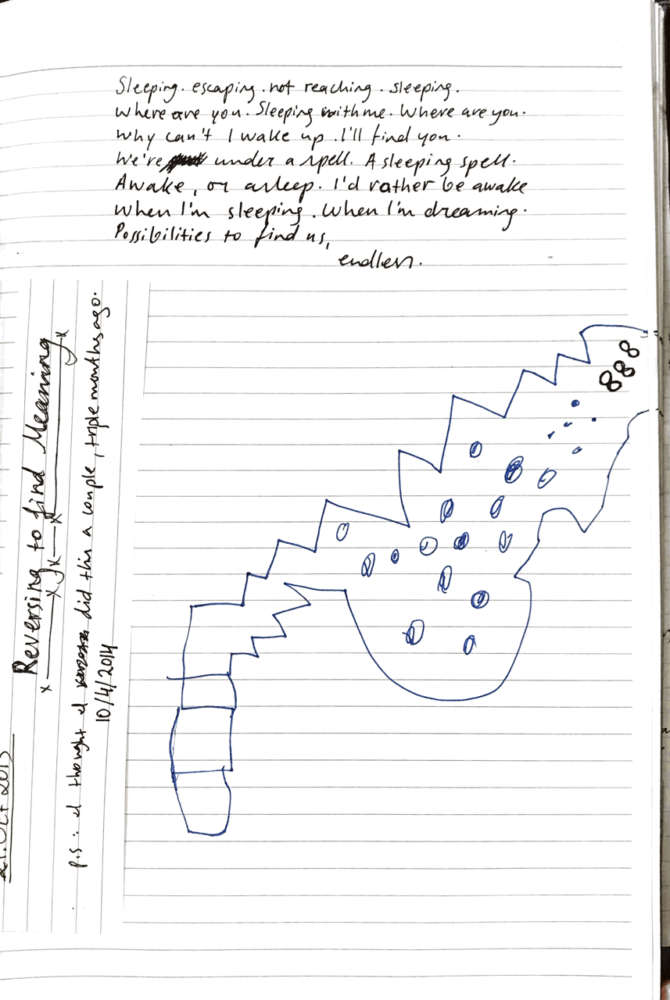 Sleeping. escaping. not reaching. sleeping.
Where are you. Sleeping with me. Where are you.
Why can't I wake up. I'll find you.
We're under a spell. A sleeping spell.
Awake, or asleep. I'd rather be awake
when I'm sleeping. When I'm dreaming.
Possibilities to find us,
endless.
888
Reversing to find Meaning
p.s: I thought I did this a couple, triple months ago.
10/4/2014
21. Oct 2013